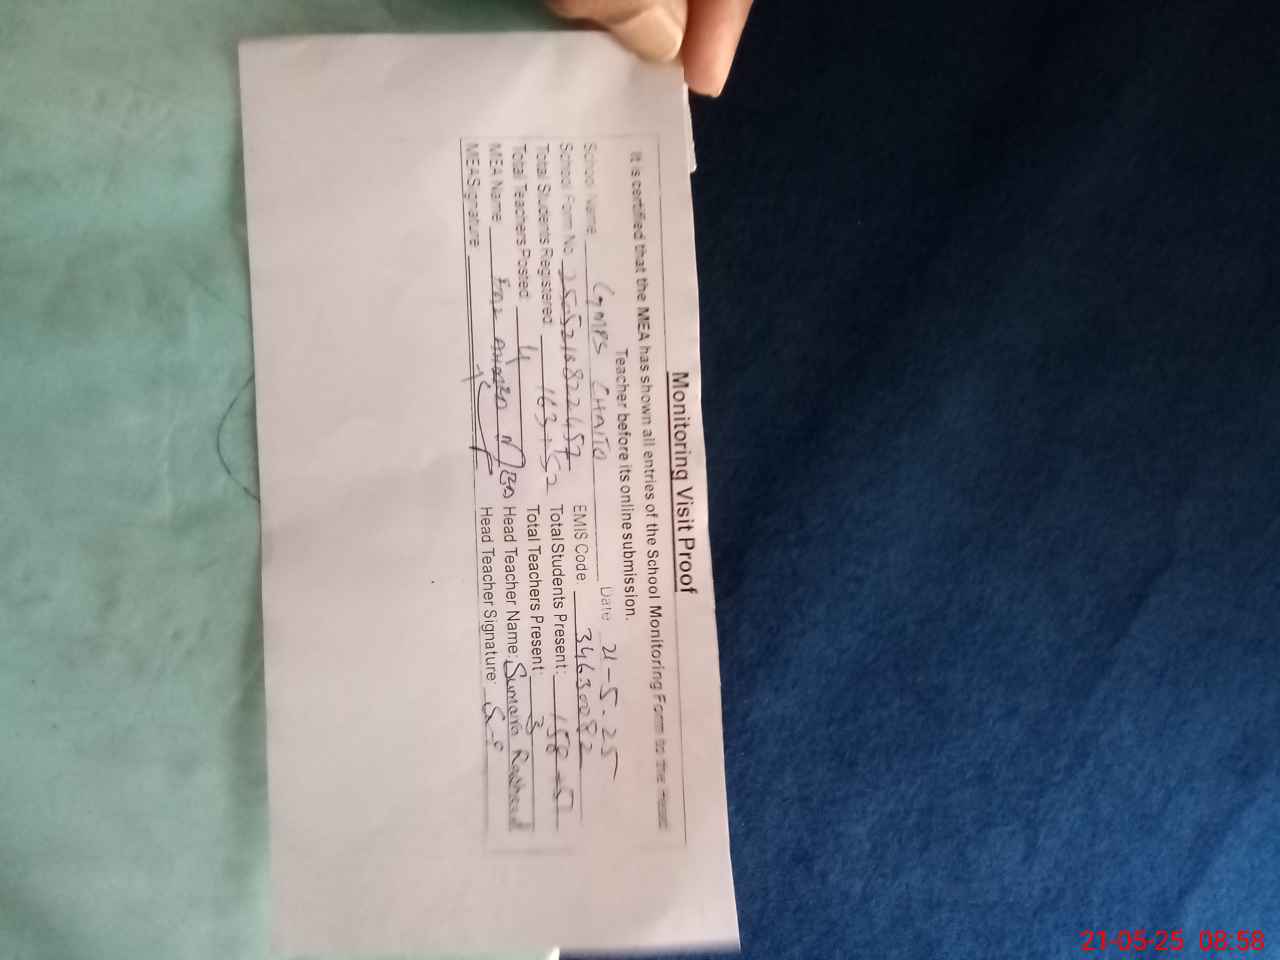 Monitoring Visit Proof
It is certified that the MEA has shown all entries of the School Monitoring Form to the Head
Teacher before its online submission.
School Name: GMPS CHAITA Date 21-5-25
School Form No. 250521822457 EMIS Code: 34630082
Total Students Registered: 163+52 Total Students Present: 158+51
Total Teachers Posted: 4 Total Teachers Present: 3
MEA Name: Head Teacher Name: Sumaira Rasheed
MEA Signature: Head Teacher Signature:
21-05-25 08:58